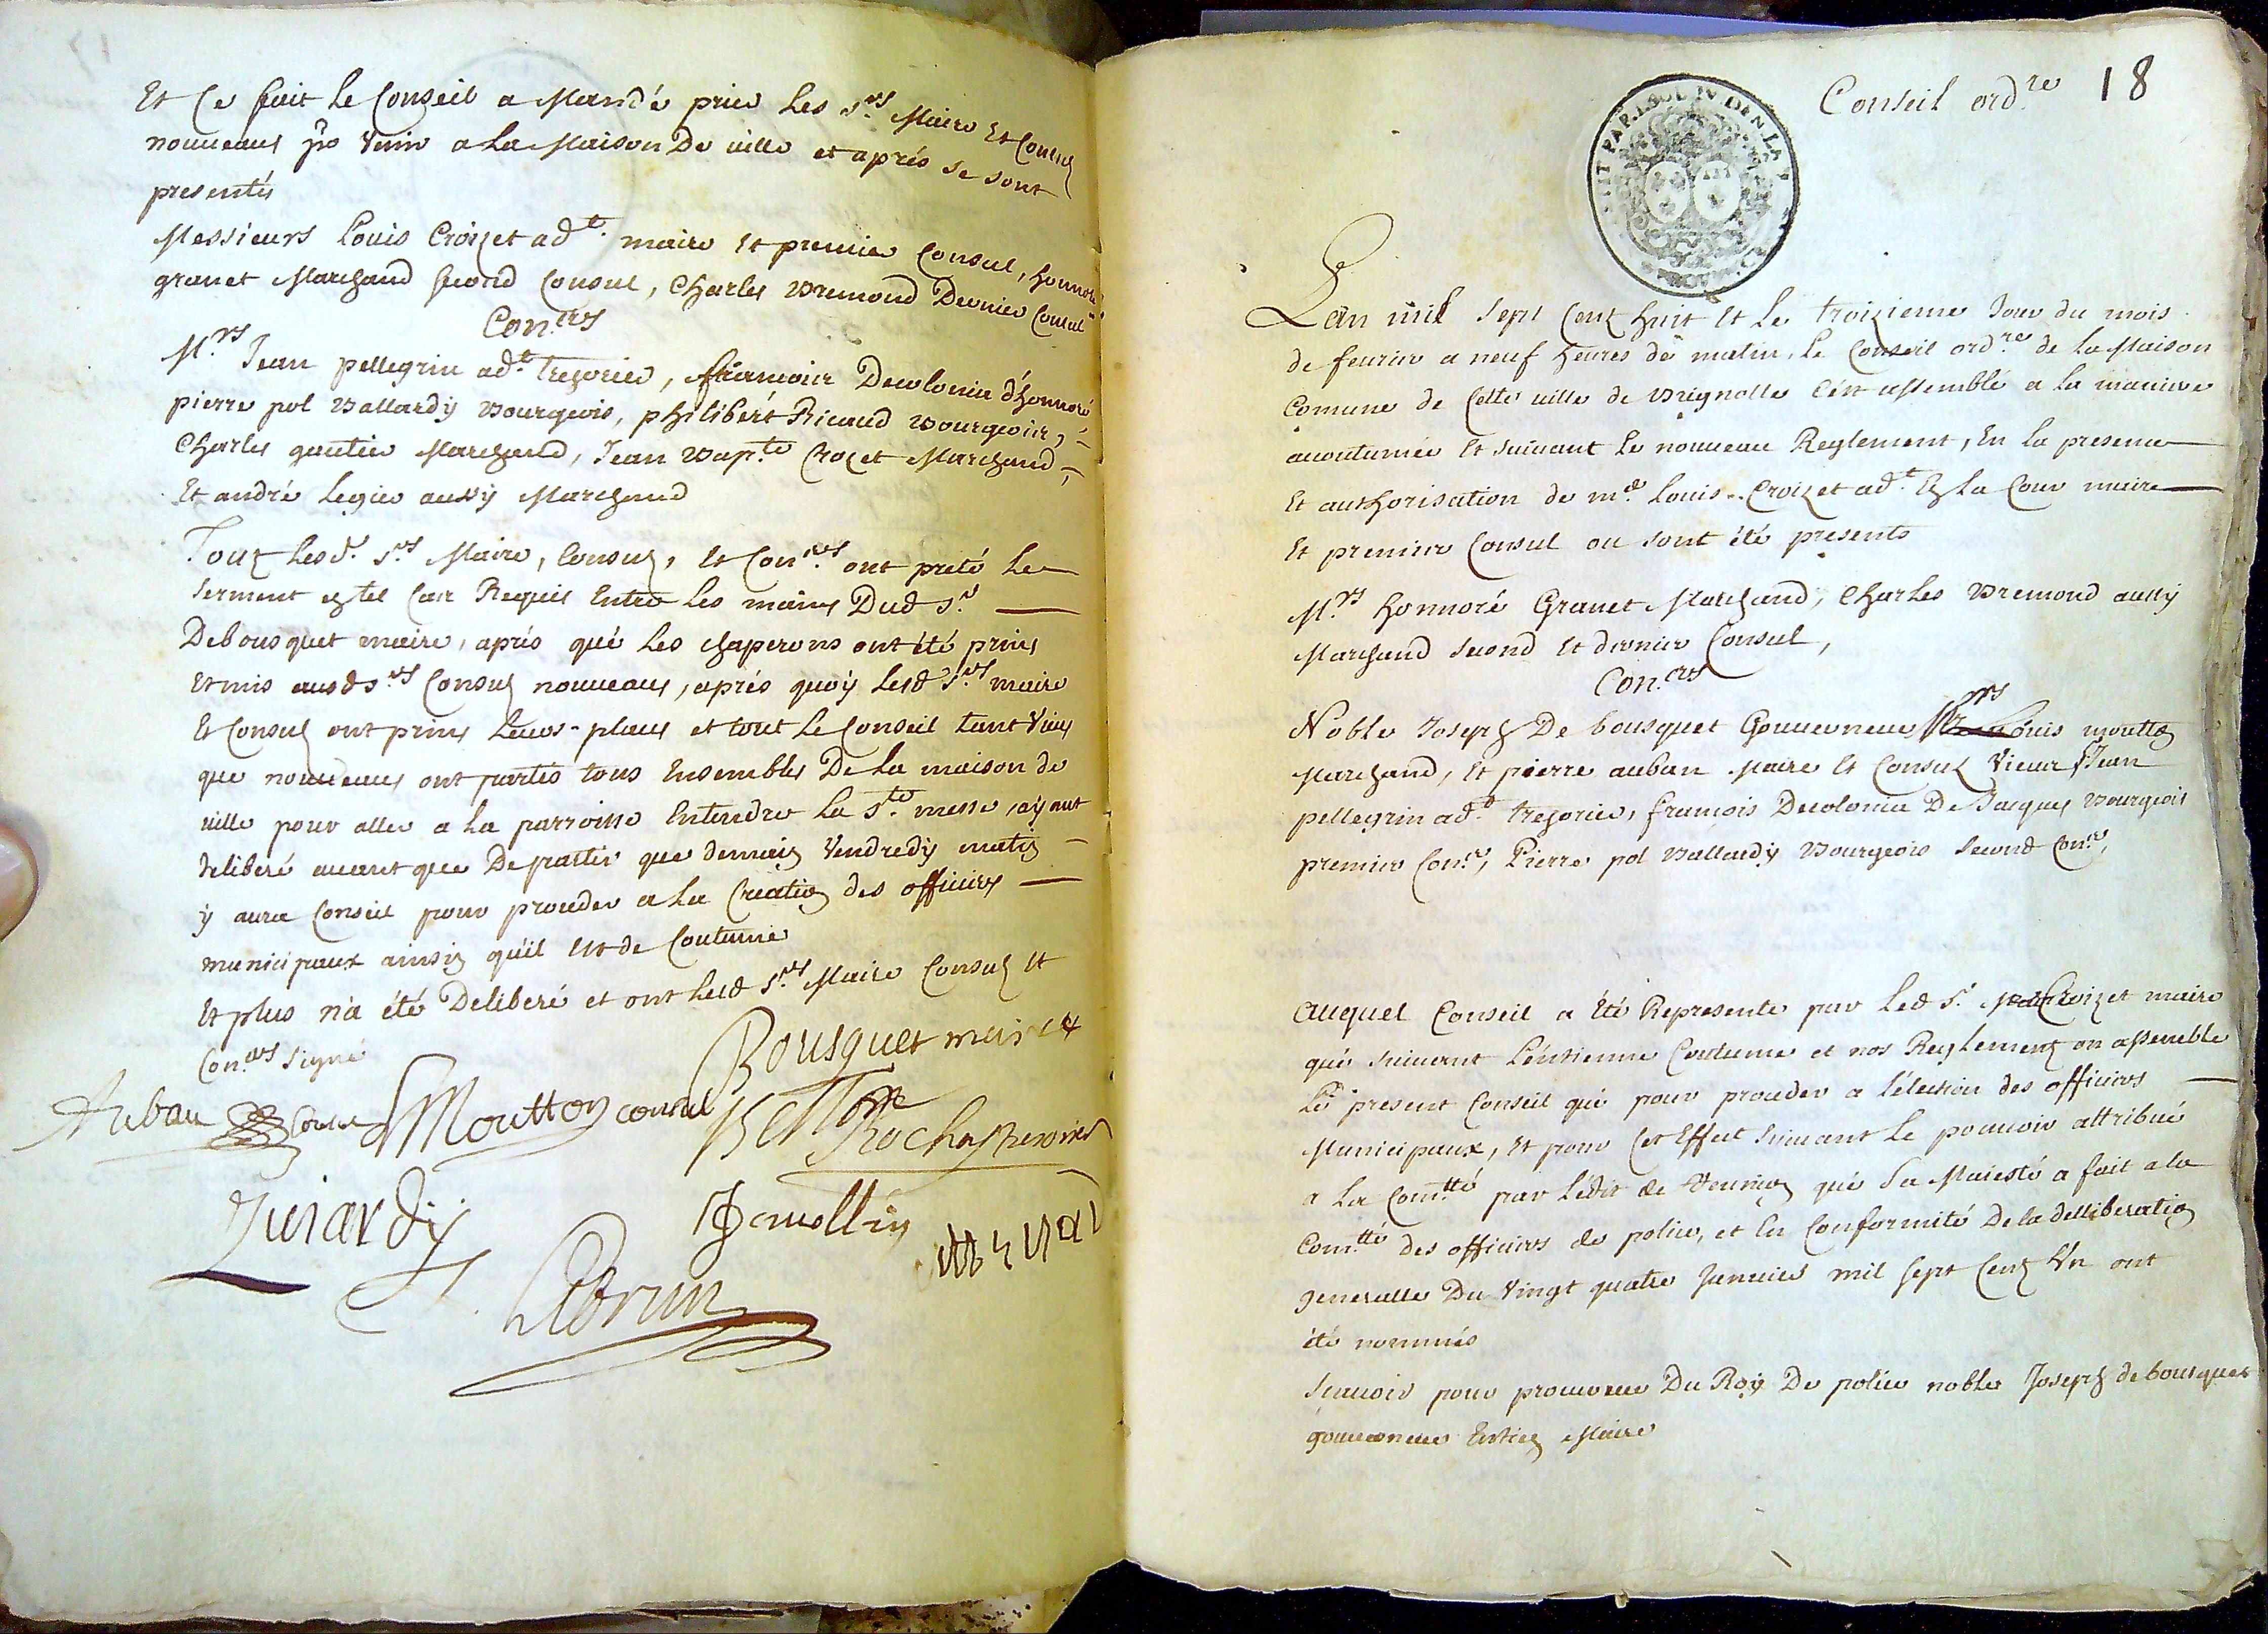 Et Ce fait le Conseil a Mandé prier Les s.rs Maire Et Consulz
nouveaux pr Venir a La Maison De ville et aprés se sont
presentés
Messieurs Louis Croizet ad.t maire et premier Consul, honnoré
granet Marchand second Consul, Charles Bremond Dernier Consul
Con.ers
M.rs Jean pellegrin ad.t trezorier, françois Decolonia d'honnoré
pierre pol Ballardy Bourgeois, philibért Ricaud Bourgeois,
Charles gautier Marchand, Jean Bap.te Crozet Marchand,
Et andré Legier aussy Marchand
Touz Lesd. s.rs Maire, Consulz, et Con.ers ont preté Le
serment en tel Cas Requis Entre Les mains Dud s.r
Debousquet maire, aprés qué Les chaperons ont été prins
Et mis ausd s.rs Consulz nouveaux, aprés quoy Lesd s.rs maire
Et Consulz ont prins Leurs places et tout Le Conseil tant vieux
que nouveaux ont partis tous Ensembles De La maison de
ville pour aller a La parroisse Entendre La s.te messe, ayant
deliberé avant que De partir que demain Vendredy matin
y aura Conseil pour proceder a La Creation des officiers
municipaux ainsin qu'il est de Coutume
Et plus n'a été Deliberé et ont Lesd s.rs Maire Consulz et
Con.ers signé
Bousquet maire
Auban Consul Moutton consul
Rocha
Jujardy
Lebrun
18
Conseil ord.re
L'an mil sept Cenz huit et Le troizieme Jour du mois
de feurier a neuf heures de matin, Le Conseil ord.re de La Maison
Comune de Cette ville de Brignolle s'ést assemblé a la maniere
acoutumée et suivant le nouveau Reglement, En la presence
Et authorisation de m.e Louis Croizet ad.t En La Cour maire
Et premier Consul ou sont été presents
M.rs honnoré Granet Marchand, Charles Bremond aussy
Marchand second et dernier Consul,
Con.ers
Noble Joseph De bousquet Gouverneur M.rs Louis moutton
Marchand, et pierre auban Maire et Consulz Vieux, Jean
pellegrin ad.t trezorier, françois Decolonia De Jacques Bourgeois
premier Con.er, Pierre pol Ballardy Bourgeois second Con.er,
Auquel Conseil a été Representé par Led s.r Croizet maire
qué suivant L'éntienne Coutume et nos Reglementz on assemble
Le present Conseil qué pour proceder a l'élection des officiers
Municipaux, et pour Cet Effect suivant le pouvoir attribué
a La Com.tté par L'édit de qué sa Maiesté a fait a la
Com.tté des officiers de police, et En Conformité De la delliberation
generalle Du Vingt quatre Janvier mil sept Cenz Un ont
été nommés
sçavoir pour procureur Du Roy De police noble Joseph debousquet
gouverneur Entien Maire